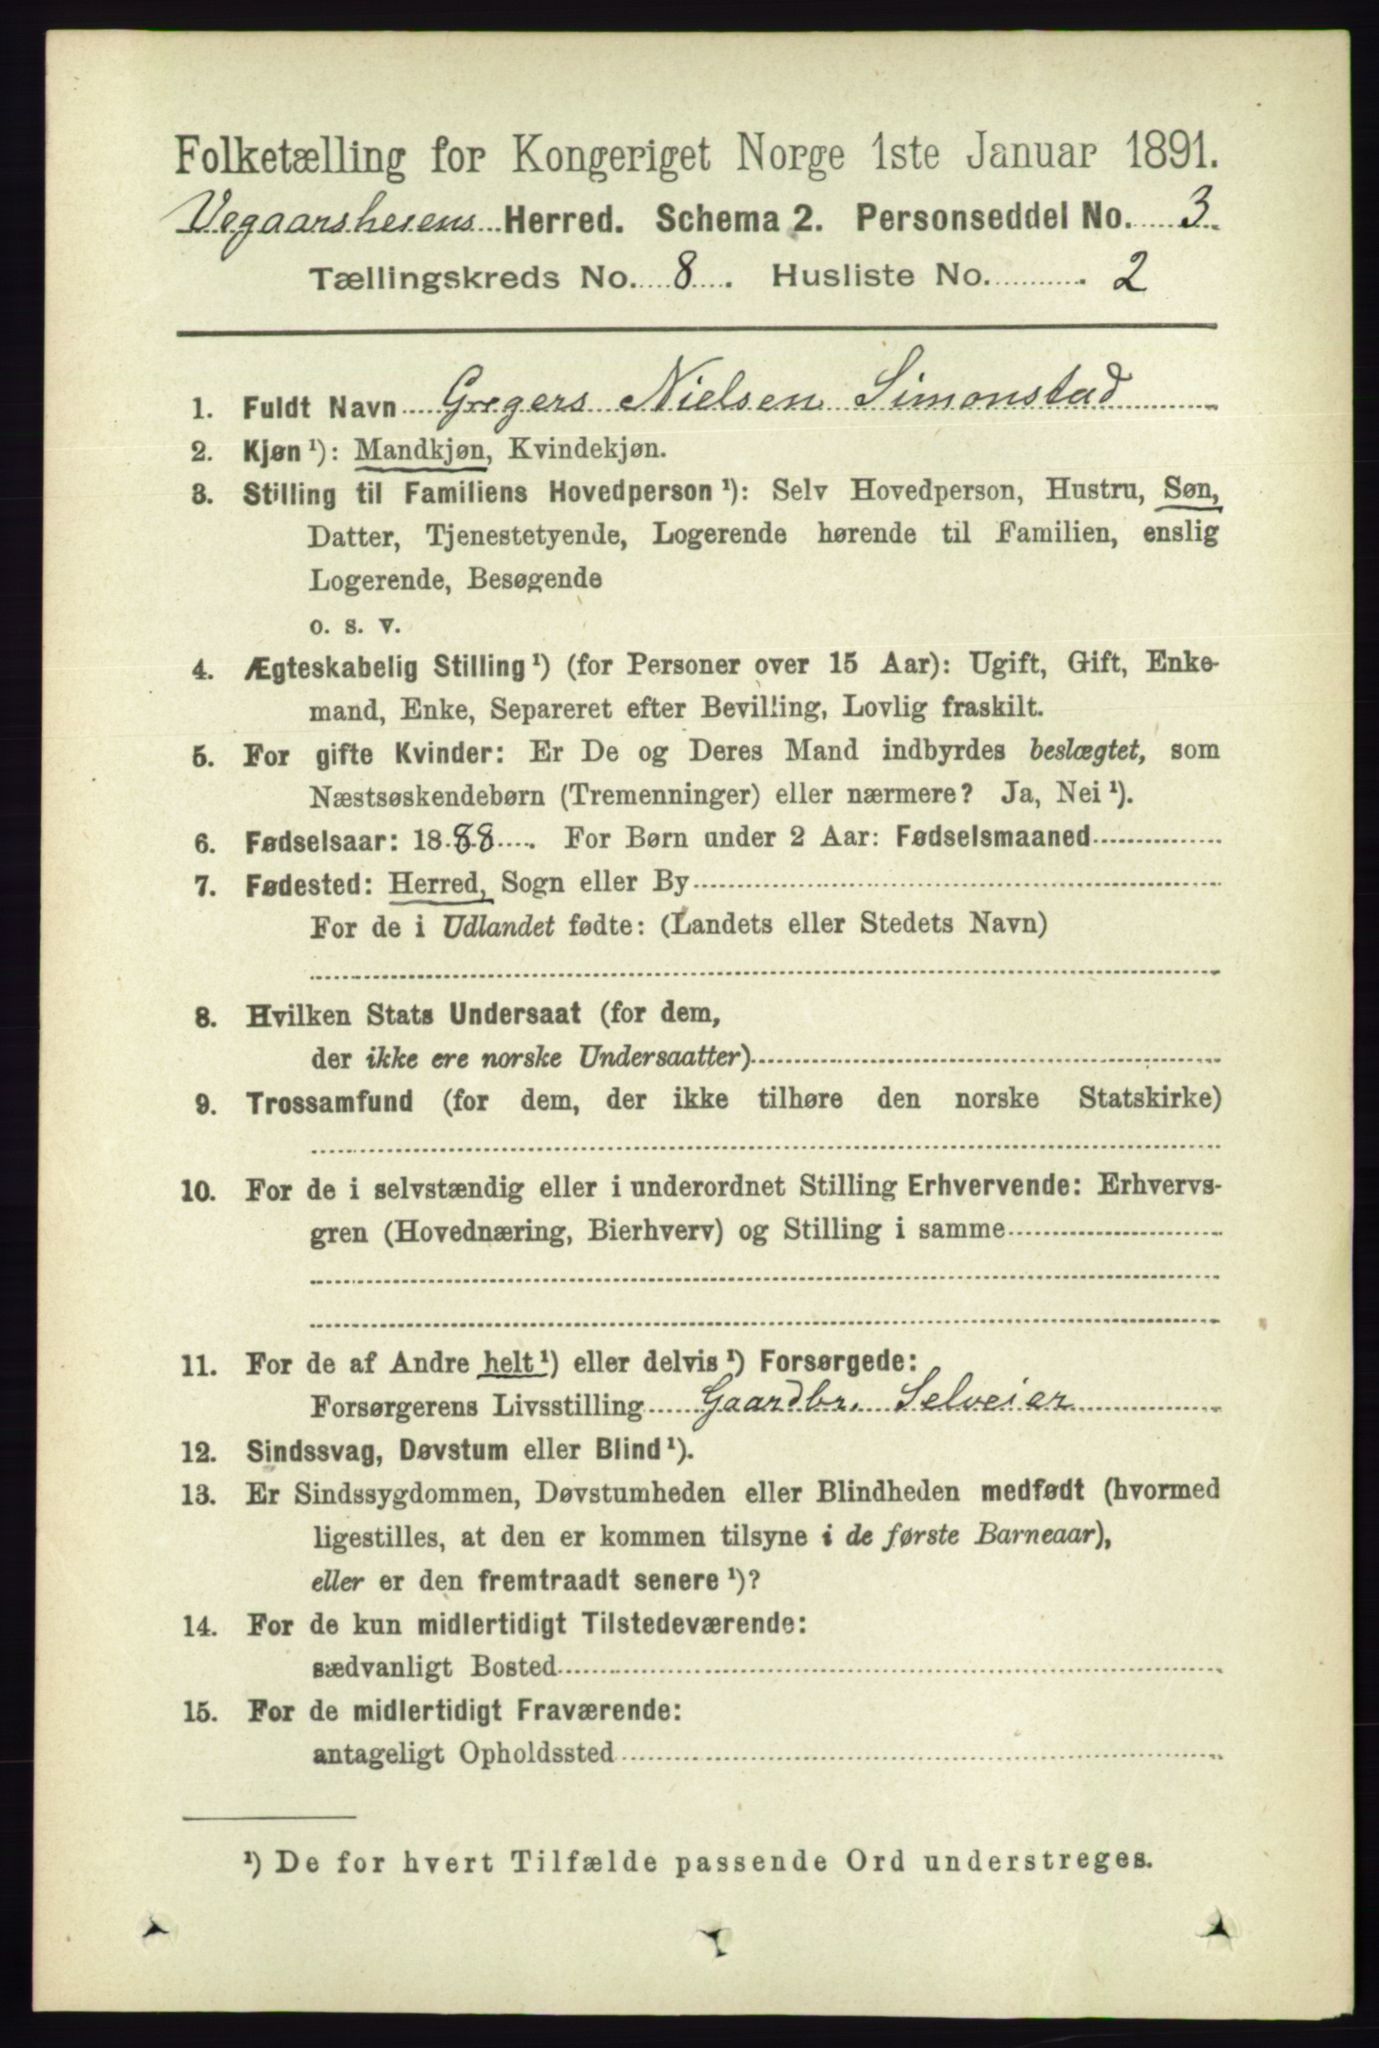 Folketælling for Kongeriget Norge 1ste Januar 1891.
Vegaarsheiens Herred. Schema 2. Personseddel No. 3.
Tællingskreds No. 8. Husliste No. 2
1. Fuldt Navn Gregers Nielsen Simonstad
2. Kjøn ¹): Mandkjøn, Kvindekjøn.
3. Stilling til Familiens Hovedperson ¹): Selv Hovedperson, Hustru, Søn,
Datter, Tjenestetyende, Logerende hørende til Familien, enslig
Logerende, Besøgende
o. s. v.
4. Ægteskabelig Stilling ¹) (for Personer over 15 Aar): Ugift, Gift, Enke-
mand, Enke, Separeret efter Bevilling, Lovlig fraskilt.
5. For gifte Kvinder: Er De og Deres Mand indbyrdes beslægtet, som
Næstsøskendebørn (Tremenninger) eller nærmere? Ja, Nei ¹).
6. Fødselsaar: 1888. For Børn under 2 Aar: Fødselsmaaned
7. Fødested: Herred, Sogn eller By
For de i Udlandet fødte: (Landets eller Stedets Navn)
8. Hvilken Stats Undersaat (for dem,
der ikke ere norske Undersaatter)
9. Trossamfund (for dem, der ikke tilhøre den norske Statskirke)
10. For de i selvstændig eller i underordnet Stilling Erhvervende: Erhvervs-
gren (Hovednæring, Bierhverv) og Stilling i samme
11. For de af Andre helt ¹) eller delvis ¹) Forsørgede:
Forsørgerens Livsstilling Gaardbr. Selveier
12. Sindssvag, Døvstum eller Blind ¹).
13. Er Sindssygdommen, Døvstumheden eller Blindheden medfødt (hvormed
ligestilles, at den er kommen tilsyne i de første Barneaar),
eller er den fremtraadt senere ¹)?
14. For de kun midlertidigt Tilstedeværende:
sædvanligt Bosted
15. For de midlertidigt Fraværende:
antageligt Opholdssted
¹) De for hvert Tilfælde passende Ord understreges.